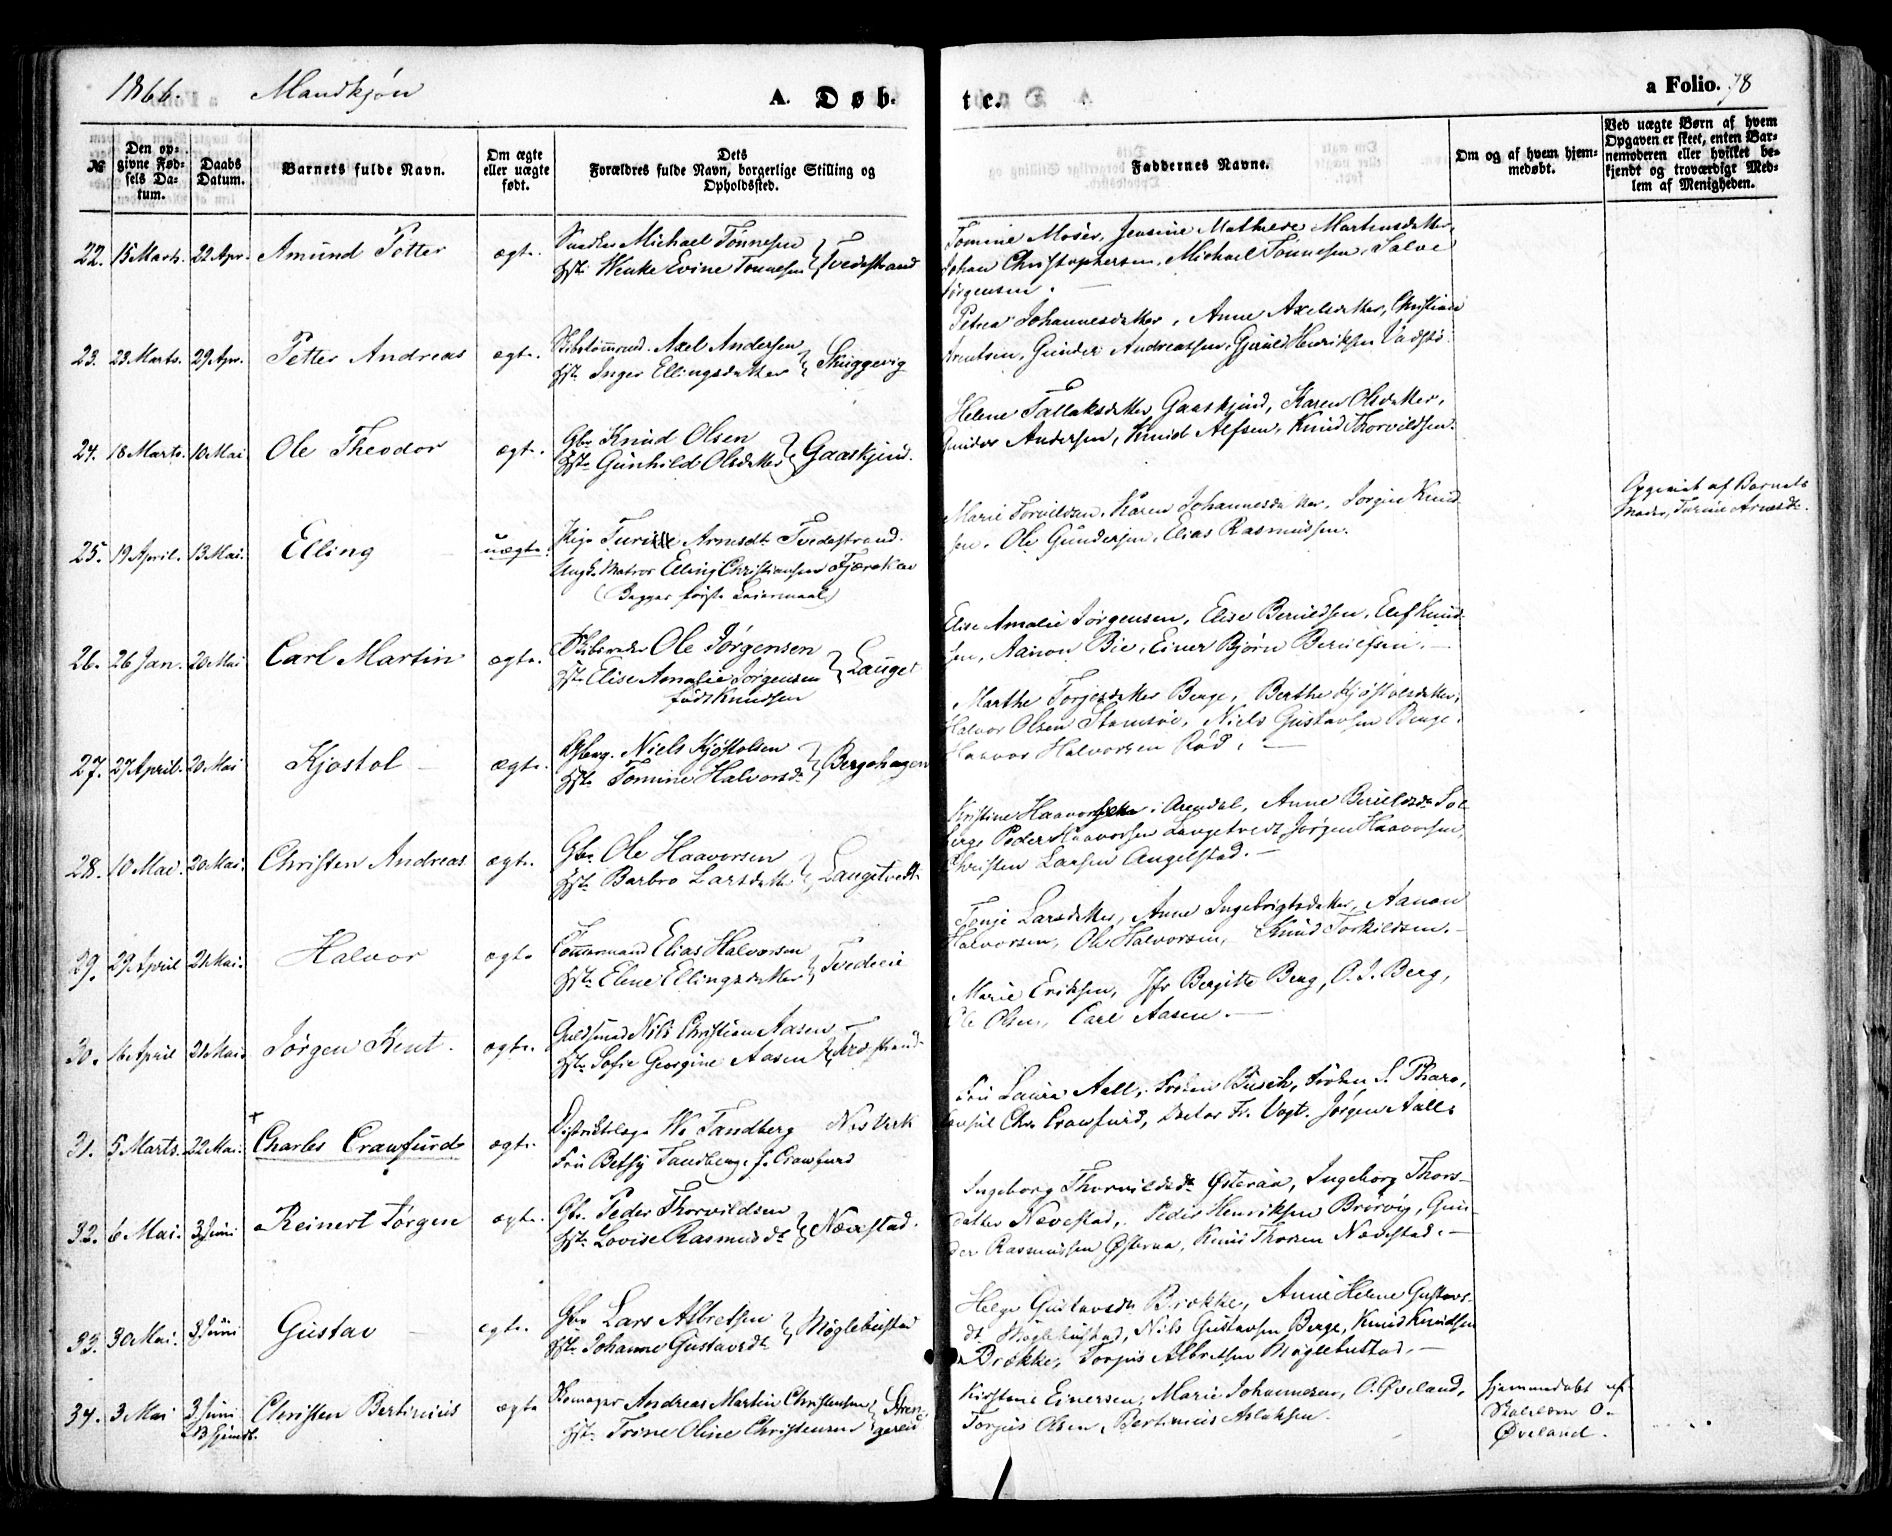 1866. Mandkjøn A. Døb- te. a Folio. 78
№ Den op-givne Fød-sels Da-tum. Daabs Datum. Barnets fulde Navn. Om ægte eller uægte født. Dets Forældres fulde Navn, borgerlige Stilling og Opholdssted. Faddernes Navne. Om og af hvem hjem-medøbt. Ved uægte Børn af hvem Opgaven er skeet, enten Bar-nemoderen eller hvilket be-kjendt og troværdigt Med-lem af Menigheden.
22. 15 Marts. 22 Apr. Amund Petter ægte. Michael Tønnesen
Hst. Wenke Evine Tønnesen } Tvedestrand
Tomine Moser, Jensine Mathilde Martensdatter,
Johan Christophersen, Michael Tønnesen, Salve
Jørgensen.
23. 23 Marts. 29 Apr. Petter Andreas ægte. Skibstømmd. Axel Andersen
Hst. Inger Ellingsdatter } Skuggevig
Petrea Johannesdatter, Anne Axelsdatter, Christian
Arentsen, Gunder Andreassen, Gjeruld Henriksen Vadstø
24. 18 Marts. 10 Mai Ole Theodor ægte. Gbr Knud Olsen
Hst. Gunhild Olsdatter } Gaaskjend.
Helene Tallaksdatter Gaaskjend, Karen Olsdatter,
Gunder Andersen, Knud Alfsen, Knud Thorvildsen.
25. 19 April. 13 Mai. Elling uægte. Pige Turine Arnesdt. Tvedestrand.
Ungk. Matros Elling Christiansen Fjærekær
(Begges første Leiermaal)
Marie Torvildsen, Karen Johannesdatter, Jørgen Knud-
sen, Ole Gundersen, Elias Rasmussen.
Opgivet af Barnets
Moder, Turine Arnesdt.
26. 26 Jan. 20 Mai Carl Martin ægte. Ole Jørgensen
Hst. Elise Amalie Jørgensen
født Knudsen } Lauget
Elise Amalie Jørgensen, Elise Beruldsen, Elef Knud-
sen, Aanon Bie, Einer Bjørn Berulfsen. —
27. 27 April. 20 Mai Kjøstol ægte. Niels Kjøstolsen
Hst. Tomine Halvorsdt } Bergehagen
Marthe Torjesdatter Berge, Berthe Kjøstolsdatter,
Halvor Olsen Stamsøe, Niels Gustavsen Berge,
Haavor Halvorsen Rød. —
28. 10 Mai. 20 Mai. Christen Andreas ægte. Gbr. Ole Haavorsen
Hst. Barbro Larsdatt. } Langetvedt
Kristine Haavorsen i Arendal, Anne Sol-
berg, Peder Haavorsen Langetvedt, Jørgen Haavorsen,
Christen Larsen Angelstad. —
29. 29 April 21 Mai. Halvor ægte Tømmermand Elias Halvorsen
Hst. Elene Ellingsdatter } Tvedeeie
Tonje Larsdatter, Anne Ingebrigtsdatter, Aanon
Halvorsen, Ole Halvorsen, Knud Torkildsen. —
30. 16 April 21 Mai Jørgen Kent. ægte. Guldsmed Nils Christian Aasen
Hst. Sofie Georgine Aasen } Tvedestrand.
Marie Eriksen, Jfr Bergitte Berg, O. J. Berg,
Ole Olsen, Carl Aasen. —
31. 5 Marts. 22 Mai. Charles Crawfurd ægte. Distriktslæge W. Tandberg Nes Verk
Fru Betsy Tandberg f. Crawfurd
Fru Laura Aall, Frøken Busch, Frøken S. Tharo,
Konsul Chr. Crawfurd, Doctor Fr. Vogt, Jørgen Aall.
32. 6 Mai. 3 Juni Reinert Jørgen ægte. Gbr. Peder Thorvildsen
Hst. Lovise Rasmusdt } Nævestad.
Ingeborg Thorvildsdt Østeraa, Ingeborg Thors-
datter Nævestad, Peder Henriksen Brørvig, Gun-
der Rasmussen Østeraa, Knud Thorsen Nævestad. —
33. 30 Mai. 3 Juni Gustav ægte. Gbr Lars Albretsen
Hst. Johanne Gustavsdt } Møglebustad
Helge Gustavsdt Brække, Anne Helene Gustavs-
dt. Møglebustad, Nils Gustavsen Berge, Knud Knudsen
Brække, Torjus Albretsen Møglebustad. —
34. 3 Mai 3 Juni Christen Bertinius ægte Skomager Andreas Martin Christensen
Hst. Trine Oline Christensen } Strengereid
Kirstene Einersen, Marie Johannesen, O. Øveland,
Torjus Olsen, Bertinius Aslaksen.
Hjemmedøbt af
O.
Øveland.